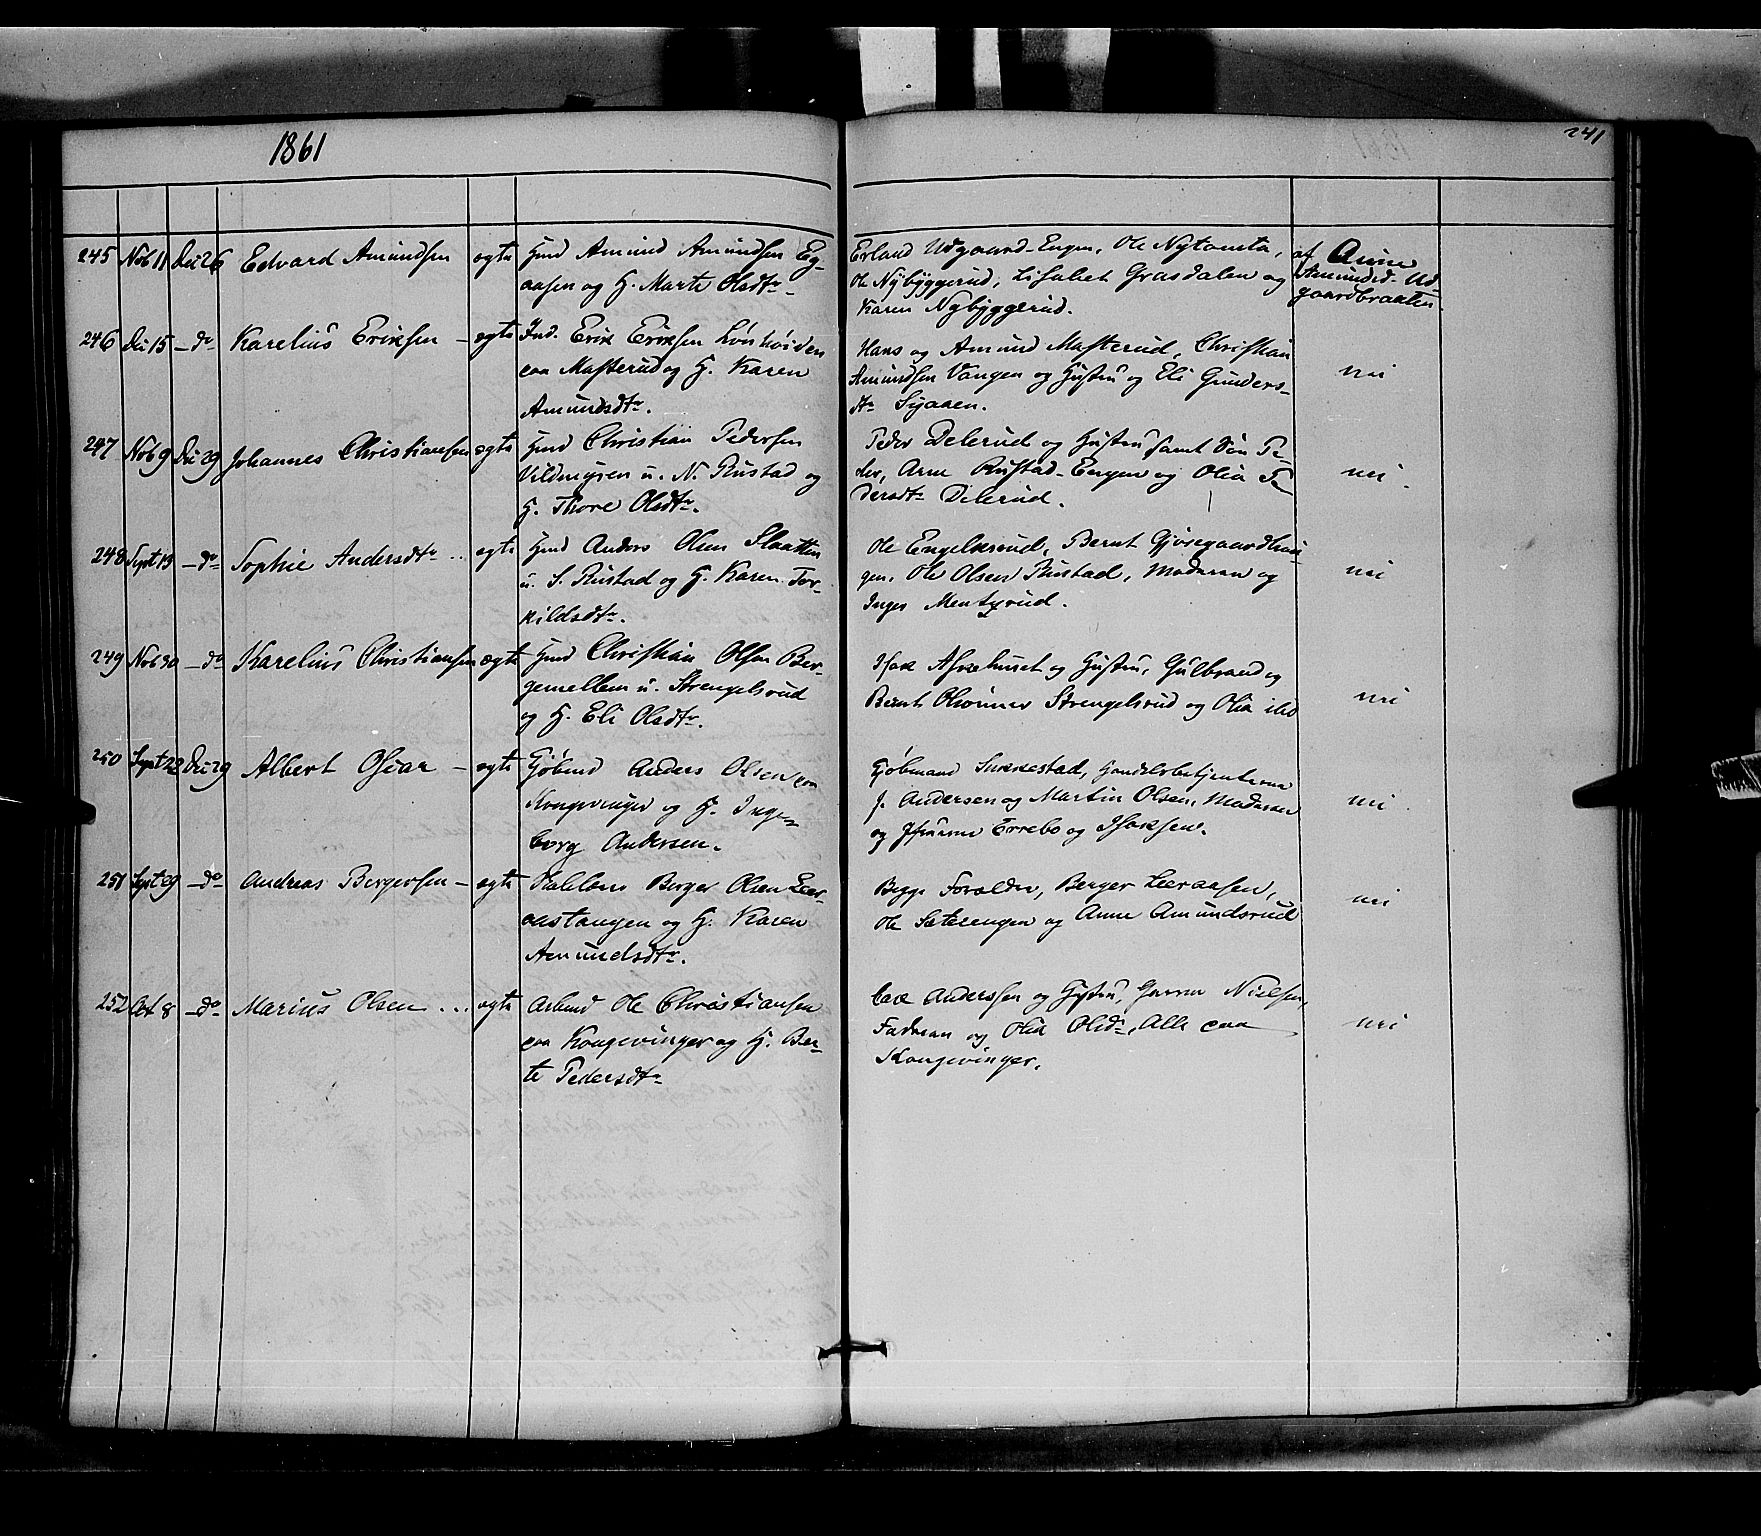 1861
241
245 Nob 11 Dec 26 Edvard Amundsen ægte Huusmd Amund Amundsen Eg-
aasen og H. Marte Olsdtr.
Erland Udgaard-Engen, Ole Nytomta,
Ole Nybyggerud, Lisabet Grasdalen og
Karen Nybyggerud.
af Anne
Amundsd. Ud-
gaardbraaten
246 Dec 15 — do Karelius Eriksen — ægte Ind. Erik Eriksen
paa Masterud og H. Karen
Amundsdtr.
Hans og Amund Masterud, Christian
Amundsen Vangen og Hustru og Eli Gunders-
dtr
nei
247 Nob 9 Dec 29 Johannes Christiansen ægte Huusmd Christian Pedersen
Vildmyren u. N. Rustad og
H. Thore Olsdtr.
Peder Delerud og Hustru samt Søn Pe-
der, Arne Rustad-Engen og Olia Pe-
dersdtr Delerud.
nei
248 Sept 13 — do Sophie Andersdtr ... ægte Huusmd Anders Olsen Slaatten
u. S. Rustad og H. Karen Tor-
kildsdtr.
Ole Engelsrud, Bernt
gen, Ole Olsen Rustad, Madman og
Inger Mentzrud.
nei
249 Nob 30 — do Karelius Christiansen ægte Huusmd Christian Olsen Ber-
gemellem u. Strengelsrud
og H. Eli Olsdtr.
Isak og Hustru, Gulbrand og
Bernt Strengelsrud og Olia ibd
nei
250 Sept 22 Dec 29 Albert Oscar — ægte Kjøbmd Anders Olsen paa
Kongsvinger og H. Inge-
borg Andersen.
Kjøbmand Sukkestad, Handelsbetjenterne
J. Andersen og Martin Olsen, Madmoer
og Errebo og Isaksen.
nei
251 Sept 29 — do Andreas Bergersen — ægte Berger Olsen Leer-
aastangen og H. Karen
Amundsdtr.
Begge Forældre, Berger Leeraasen,
Ole Seterengen og Anne Amundsrud
nei
252 Oct 8 — do Marius Olsen ... ægte Arbmd Ole Christiansen
paa Kongsvinger og H. Ber-
te Pedersdtr
Anderssen og Hustru, Nielsen,
Fadman og Olia Olsdr, Alle paa
Kongsvinger.
nei